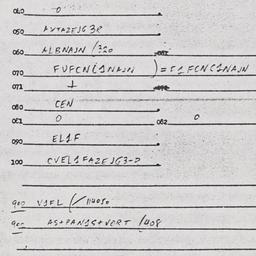 040 0
050 AVTAZEJG3R
060 ALBNAJN /320
070 FUFCN(1NAJN ) = F1FCN(1NAJN
071 1
080 CEN
081 0 082 0
090 EL1F
100 CVEL1FAZEJG3-D
900 V1FL (/114030
900 AS+PAN1S+VERT /408